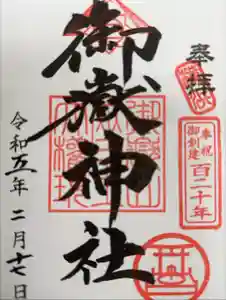 奉拝
奉祝
御創建
百二十年
御嶽神社
令和五年二月十七日